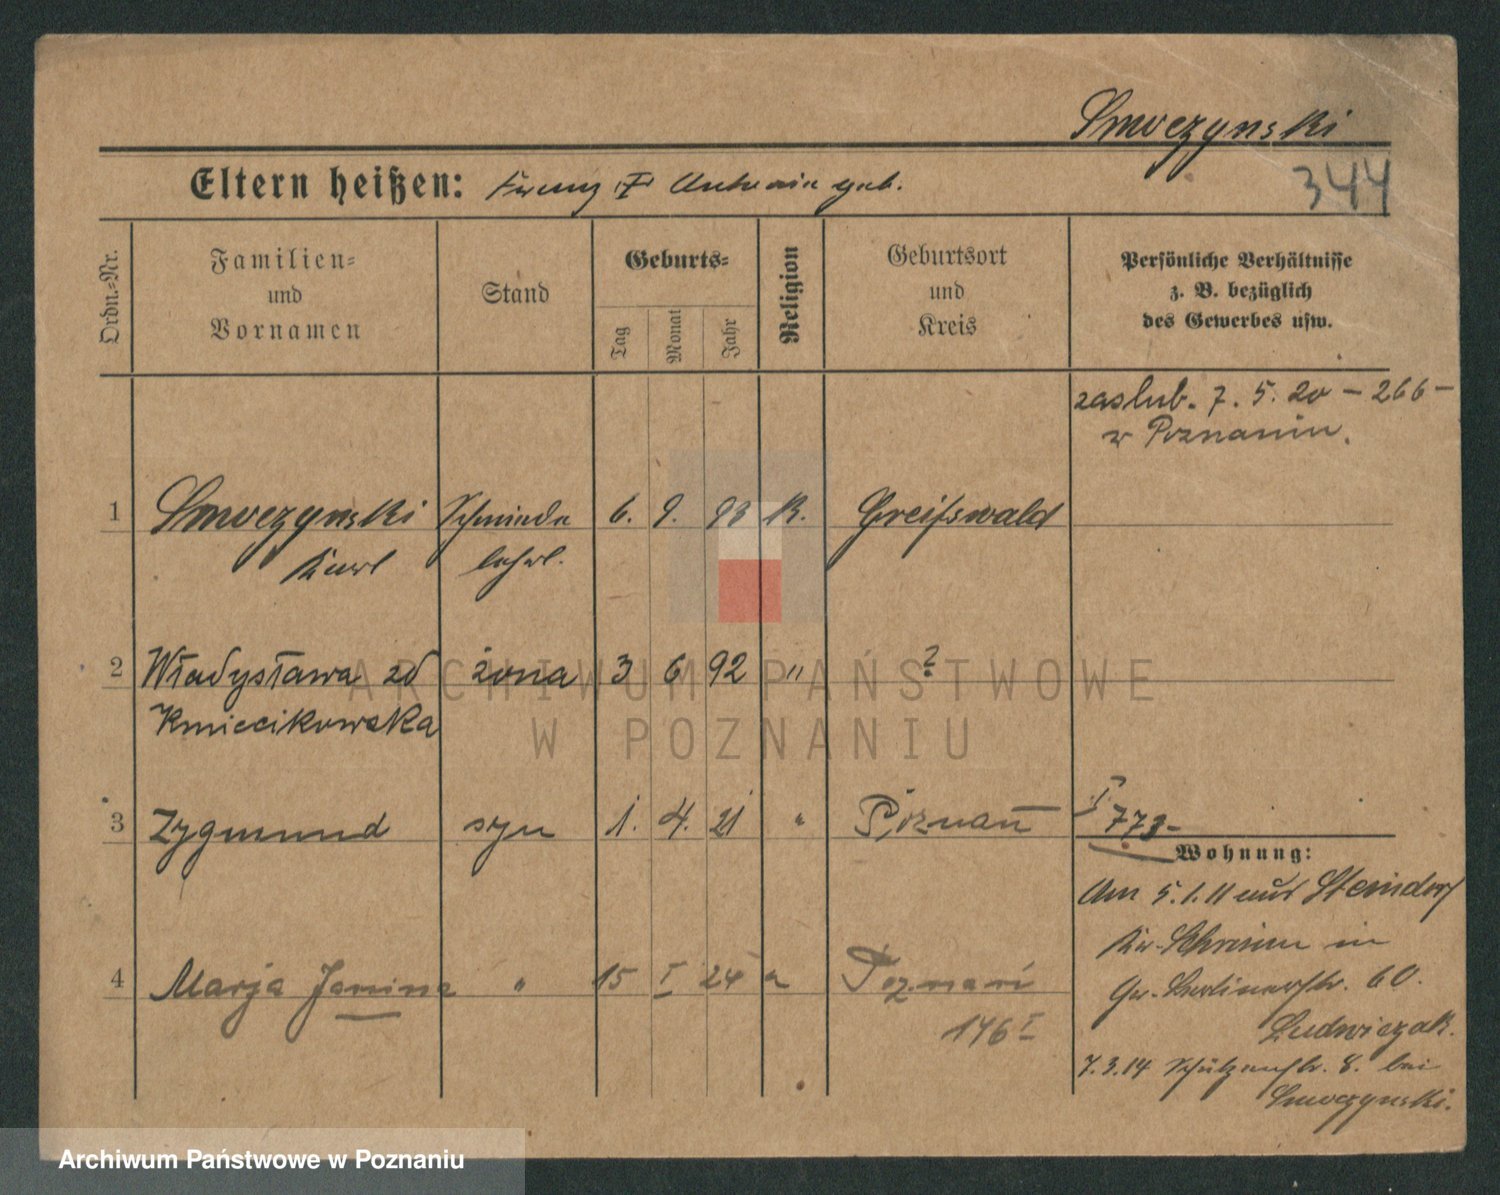 Smoczynski
344
Eltern heißen: Franz † Antonie geb.
Ordn.-Nr.
Familien-
und
Vornamen
Stand
Geburts-
Tag
Monat
Jahr
Religion
Geburtsort
und
Kreis
Persönliche Verhältnisse
z. B. bezüglich
des Gewerbes usw.
zaslub. 7. 5. 20 – 266 –
w Poznaniu.
1 Smoczynski Schmiede 6. 9. 93 K. Greifswald
Karl lehrl.
2 Władysława zd żona 3 6 92 " ?
Kmiecikowska
3 Zygmund syn 1. 4. 21 " Poznań I 773-
Wohnung:
Am 5.1.11 aus Steindorf
Kr. Schrimm in
Gr. Berlinerstr. 60.
Ludwiczak.
4 Marja Janina " 15 I 24 " Poznań
146 I
7.3.14 Schützenstr. 8. bei
Smoczynski.
ARCHIWUM PAŃSTWOWE
W POZNANIU
Archiwum Państwowe w Poznaniu